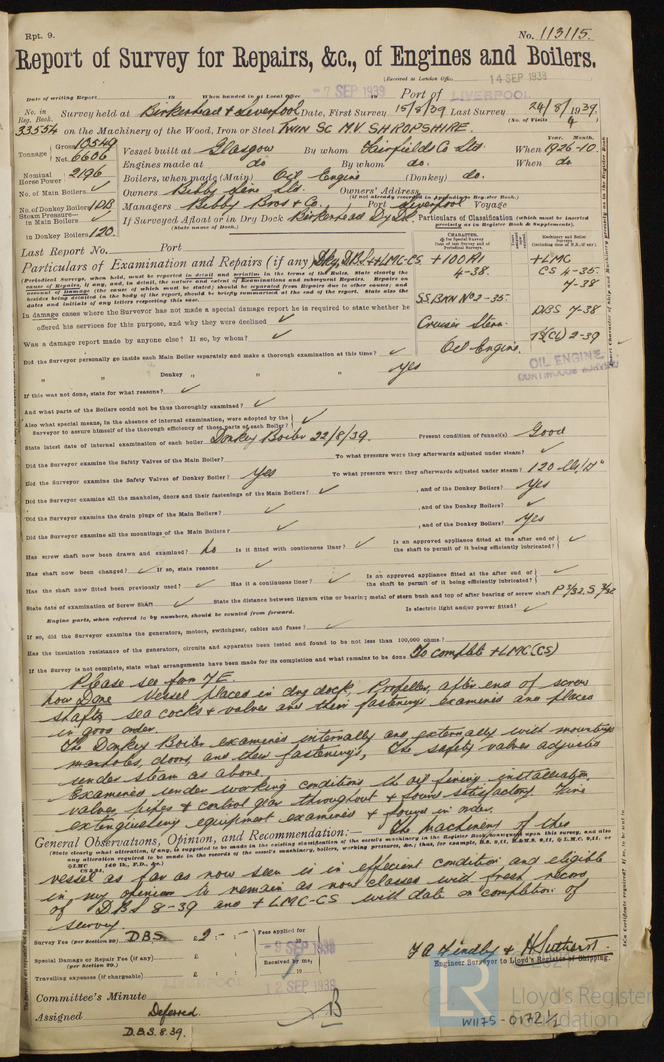 Rpt. 9.
No. 113115.
Report of Survey for Repairs, &c., of Engines and Boilers.
(Received at London Office 14 SEP 1939
Date of writing Report 19 When handed in at Local Office -7 SEP 1939 Port of LIVERPOOL
No. in Reg. Book. Survey held at Birkenhead & Liverpool Date, First Survey 15/8/39 Last Survey 24/8/1939
(No. of Visits 4
33554 on the Machinery of the Wood, Iron or Steel Twin Sc M.V. SHROPSHIRE.
Tonnage Gross 10549 Net 6606
Vessel built at Glasgow By whom Fairfields Co Ltd. When 1926-10
Engines made at do By whom do. When do
Nominal Horse Power 2196 Boilers, when made (Main) Oil Engine (Donkey) do.
No. of Main Boilers ✓ Owners Bibby Line Ltd. Owners' Address
(if not already recorded in Appendix to Register Book.)
No. of Donkey Boilers 1DB Managers Bibby Bros & Co. Port Liverpool Voyage
Steam Pressure in Main Boilers ✓ If Surveyed Afloat or in Dry Dock Birkenhead Dry Dk.
(State name of Dock.)
in Donkey Boilers 120.
Particulars of Classification (which must be inserted precisely as in Register Book & Supplements).
Last Report No. Port
Particulars of Examination and Repairs (if any) Dkg, DBS & +LMC-CS
+100A1 4-38.
SS BKN No 2-35.
Cruiser Stern.
Oil Engine.
+LMC
CS 4-35.
7-38
DBS 7-38
TS(CL) 2-39
OIL ENGINE
CONTINUOUS SURVEY
In damage cases where the Surveyor has not made a special damage report he is required to state whether he
offered his services for this purpose, and why they were declined ✓
Was a damage report made by anyone else? If so, by whom? ✓
Did the Surveyor personally go inside each Main Boiler separately and make a thorough examination at this time? ✓
" " Donkey " " " yes
If this was not done, state for what reasons? ✓
And what parts of the Boilers could not be thus thoroughly examined? ✓
Also what special means, in the absence of internal examination, were adopted by the
Surveyor to assure himself of the thorough efficiency of those parts of each Boiler? ✓
State latest date of internal examination of each boiler Donkey Boiler 22/8/39. Present condition of funnel(s) Good
Did the Surveyor examine the Safety Valves of the Main Boiler? ✓ To what pressure were they afterwards adjusted under steam? ✓
Did the Surveyor examine the Safety Valves of Donkey Boiler? Yes To what pressure were they afterwards adjusted under steam? 120 lb/□"
Did the Surveyor examine all the manholes, doors and their fastenings of the Main Boilers? ✓ , and of the Donkey Boilers? Yes
Did the Surveyor examine the drain plugs of the Main Boilers? ✓ , and of the Donkey Boilers? ✓
Did the Surveyor examine all the mountings of the Main Boilers? ✓ , and of the Donkey Boilers? Yes
Has screw shaft now been drawn and examined? No Is it fitted with continuous liner? ✓ Is an approved appliance fitted at the after end of the shaft to permit of it being efficiently lubricated? ✓
Has shaft now been changed? ✓ If so, state reasons ✓
Has the shaft now fitted been previously used? ✓ Has it a continuous liner? ✓ Is an approved appliance fitted at the after end of the shaft to permit of it being efficiently lubricated? ✓
State date of examination of Screw Shaft ✓ State the distance between lignum vitæ or bearing metal of stern bush and top of after bearing of screw shaft P 3/32. S 3/32
Engine parts, when referred to by numbers, should be counted from forward. Is electric light and/or power fitted? ✓
If so, did the Surveyor examine the generators, motors, switchgear, cables and fuses? ✓
Has the insulation resistance of the generators, circuits and apparatus been tested and found to be not less than 100,000 ohms? ✓
If the Survey is not complete, state what arrangements have been made for its completion and what remains to be done To complete +LMC(CS)
Please see form 7E.
Now Done Vessel placed in dry dock, Propellers, after end of screw
shafts, sea cocks & valves and their fastenings examined and placed
in good order.
The Donkey Boiler examined internally and externally with mountings
manholes, doors, and their fastenings, The safety valves adjusted
under steam as above.
Examined under working conditions the oil firing installation,
valves, pipes & control gear throughout & found satisfactory. Fire
extinguishing equipment examined & found in order.
General Observations, Opinion, and Recommendation:— The machinery of this
vessel as far as now seen is in efficient condition and eligible
in my opinion to remain as now classed with fresh record
of DBS 8-39 and +LMC-CS with date on completion of
survey.
Survey Fee (per Section 29) DBS. £ 2 : - : - Fees applied for
-9 SEP 1939
Special Damage or Repair Fee (if any) £ : :
(per Section 29.)
Received by me,
Travelling expenses (if chargeable) £ : :
12 SEP 1939
F A Findlay & H Sutherst.
Engineer Surveyor to Lloyd's Register of Shipping.
Committee's Minute LIVERPOOL
Assigned Deferred
D.B.S. 8.39.
LR
Lloyd's Register
Foundation
W1175-0172 1/2